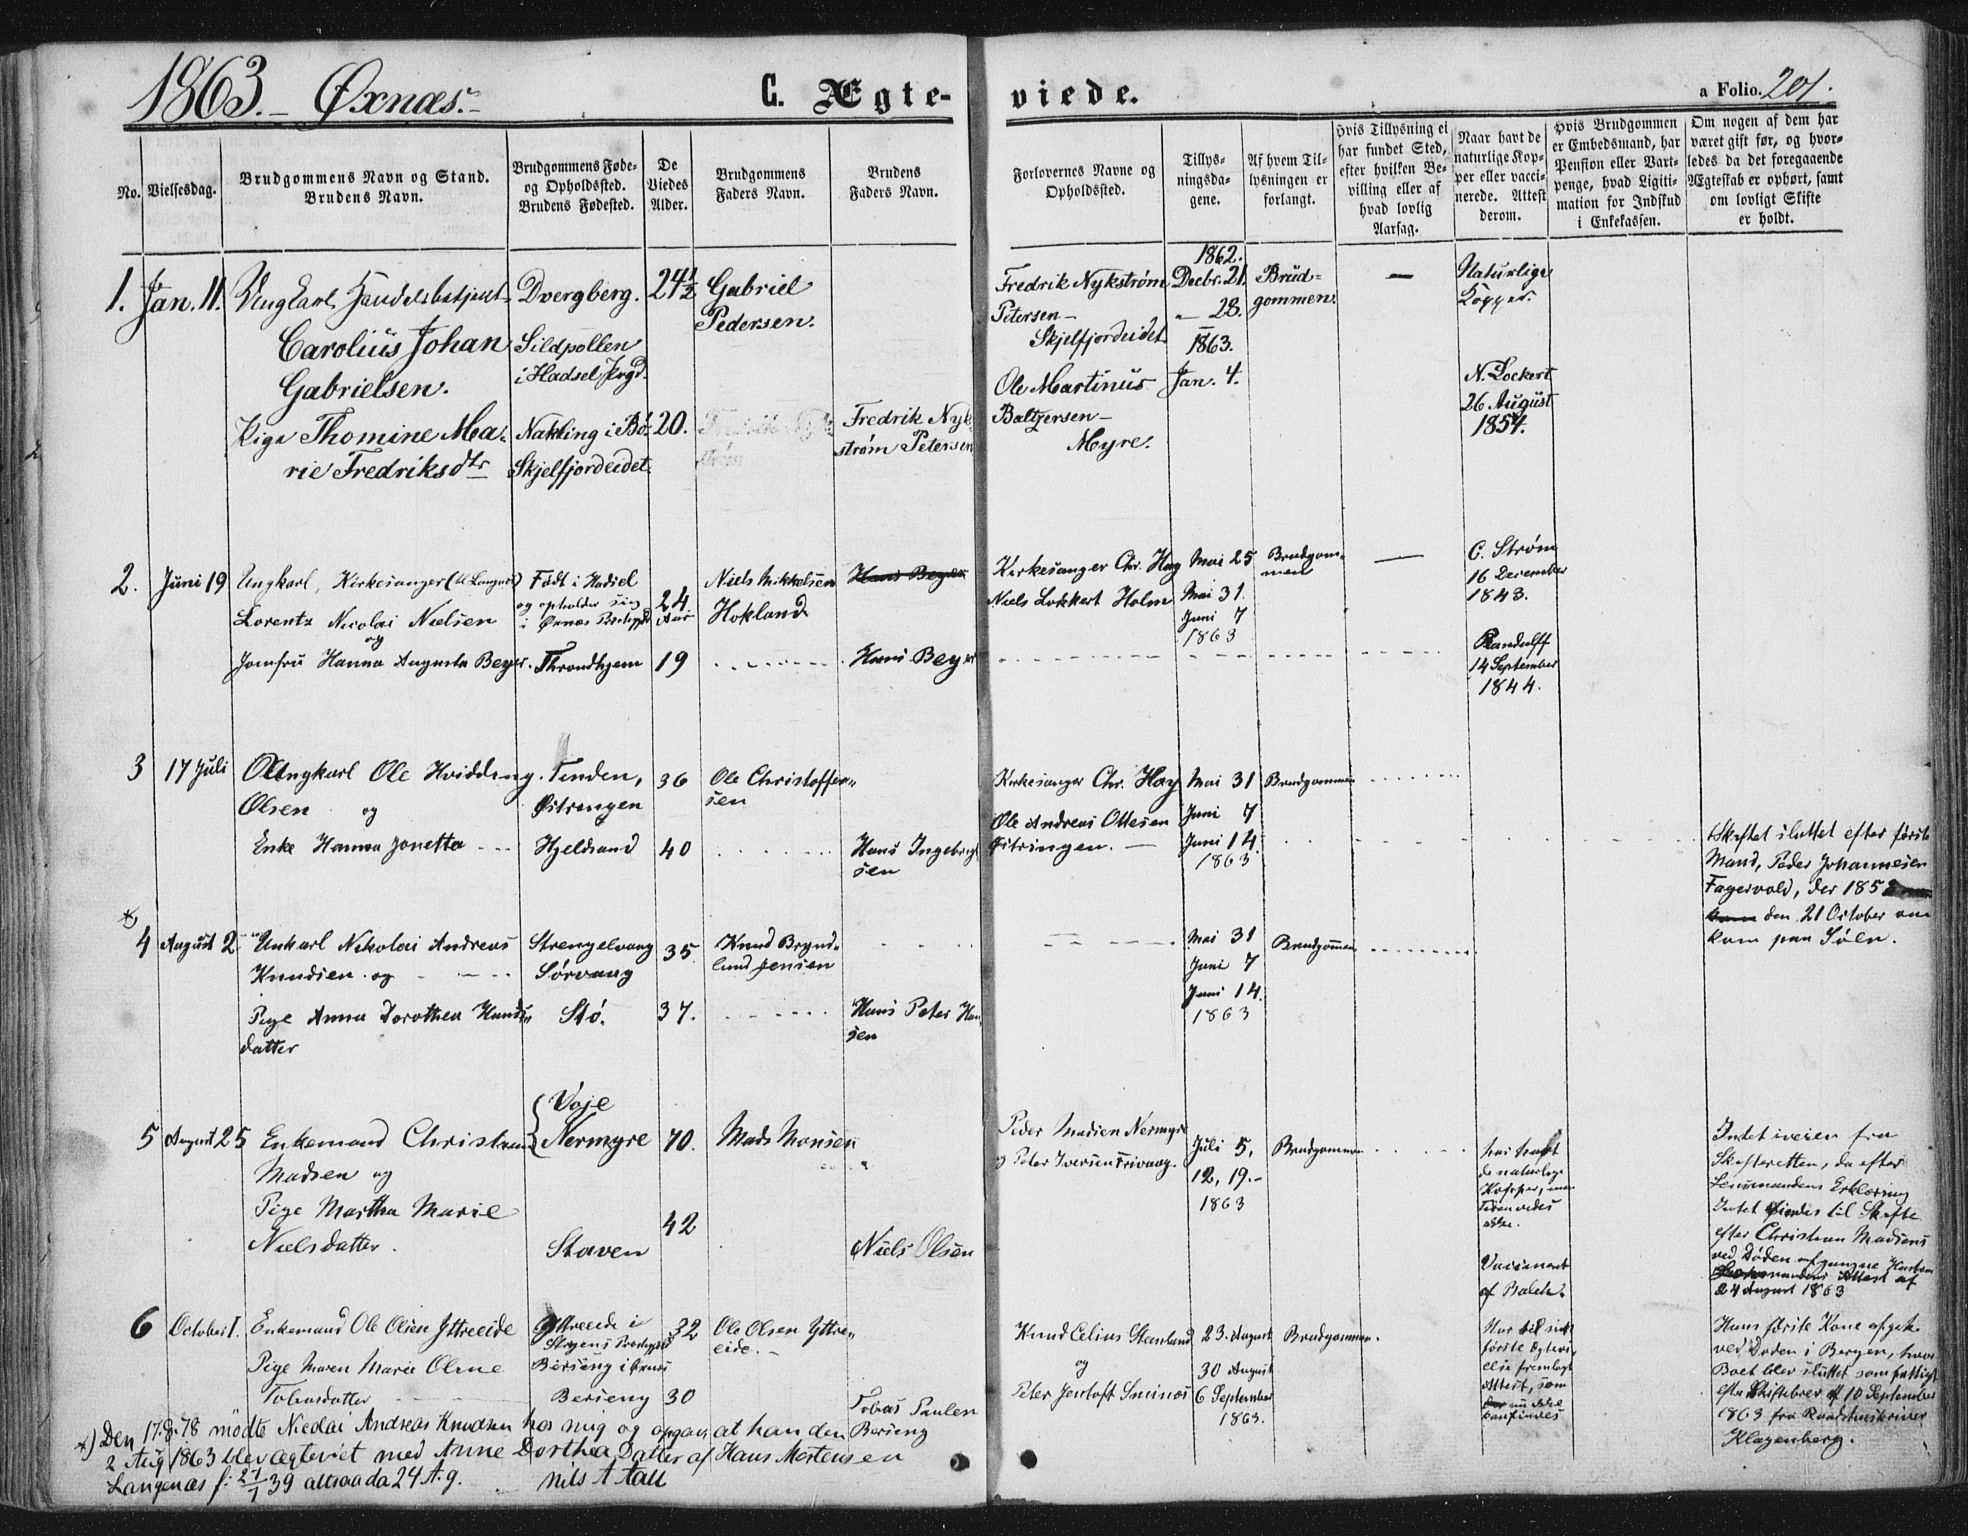 1863. – Øxnæs. –
C. Ægteviede.
a Folio. 201.
No.
Vielsesdag.
Brudgommens Navn og Stand.
Brudens Navn.
Brudgommens Føde-
og Opholdssted.
Brudens Fødested.
De
Viedes
Alder.
Brudgommens
Faders Navn.
Brudens
Faders Navn.
Forlovernes Navne og
Opholdssted.
Tillys-
ningsda-
gene.
Af hvem Til-
lysningen er
forlangt.
Hvis Tillysning ei
har fundet Sted,
efter hvilken Be-
villing eller af
hvad lovlig
Aarsag.
Naar havt de
naturlige Kop-
per eller vacci-
nerede. Attest
derom.
Hvis Brudgommen
er Embedsmand, har
Pension eller Vart-
penge, hvad Ligiti-
mation for Indskud
i Enkekassen.
Om nogen af dem har
været gift før, og hvor-
ledes da det foregaaende
Ægteskab er ophørt, samt
om lovligt Skifte
er holdt.
1. Jan. 11. Ungkarl, Handelsbetjent
Carolius Johan
Gabrielsen.
Pige Thomine Ma-
rie Fredriksdtr
Dvergberg.
Sildpollen
i Hadsel Prgd.
Nakling i Bø
Skjelfjordeidet
24½
20.
Gabriel
Pedersen.
Fredrik Nyk-
strøm Petersen
Fredrik Nykstrøm
Petersen –
Skjelfjordeidet
Ole Martinus
Baltzersen –
Myre.
1862.
Decbr. 21.
" 28.
1863.
Jan. 4.
Brud-
gommen.
—
Naturlige
Kopper.
N. Lockert
26 August
1854.
2. Juni 19 Ungkarl, Kirkesanger (til Langnes)
Lorentz Nicolai Nielsen
og
Jomfru Hanna Augusta Beyer.
Født i Hadsel
og opholder sig
i Øxnes Præstegjeld
Throndhjem
24
Aar
19
Niels Mikkelsen
Hokland
Hans Beyer
Hans Beyer
Kirkesanger Chr. Høy
Niels Lokkert Holm
Mai 25
Mai 31.
Juni 7
1863
Brudgom-
men
—
C. Strøm
16 December
1843.
Randulff
14 September
1844.
3 17 Juli Ungkarl Ole Hvidding
Olsen og
Enke Hanna Jonetta
Tinden,
Østringen
Hjeldsand
36
40
Ole Christoffer-
sen
Hans Ingebrigt
sen
Kirkesanger Chr. Høy
Ole Andreas Ottesen
Østringen.
Mai 31
Juni 7
Juni 14
1863
Brudgommen
Skiftet sluttet efter første
Mand, Peder Johannesen
Fagervold, der 185
den 21 October om
kom paa Søen.
*)
4 August 2 Unkarl Nikolai Andreas
Knudsen og
Pige Anna Dorothea Hans
datter
Strengelvaag
Sørvaag
Stø.
35
37.
Knud Brynd-
lund Jensen
Hans Peter Han
sen
Mai 31
Juni 7
Juni 14.
1863
Brudgommen
5 August 25 Enkemand Christian
Madsen og
Pige Martha Marie
Nielsdatter.
Vøje
Nermyre
Staven
70.
42
Mads Monsen
Niels Olsen
Peder Madsen Nermyre
og Peter Iversen Frivaag.
Juli 5,
12, 19. –
1863
Brudgommen
har havt
de naturlige
Kopper, men
Tiden vides
ikke.
Vaccineret
af Balch.
Intet iveien fra
Skifteretten, da efter
Lensmandens Erklæring
Intet findes til Skifte
efter Christian Madsens
ved Døden afgangne Hustru
Lensmandens Attest af
24 August 1863
6 October 1. Enkemand Ole Olsen Yttreeide
Pige Maren Marie Oline
Tobiasdatter
Yttreeide i
Strynens Præstegjeld
Børsing i Øxnes
Børsing
32
30
Ole Olsen Yttre-
eide. –
Tobias Paulsen
Børsing
Knud Celius Steenland
og
Peter Jentoft Smines
23. August
30 August
6 September
1863.
Brudgommen.
Har til sit
første Ægtesk
else fremlagt
Attest, som
nu ikke
kan findes
Hans første Kone afgik
ved Døden i Bergen, hvor
Boet blev sluttet som fattigt
efter Skiftebrev af 10 September
1863 fra Raadstueskriver
Klagenberg.
*) Den 17.8.78 mødte Nicolai Andreas Knudsen hos mig og opgav at han den
2 Aug 1863 blev ægteviet med Anne Dorthea Datter af Hans Mortensen
Langenæs f: 27/1 39 altsaa da 24 A. g. Nils A Aall